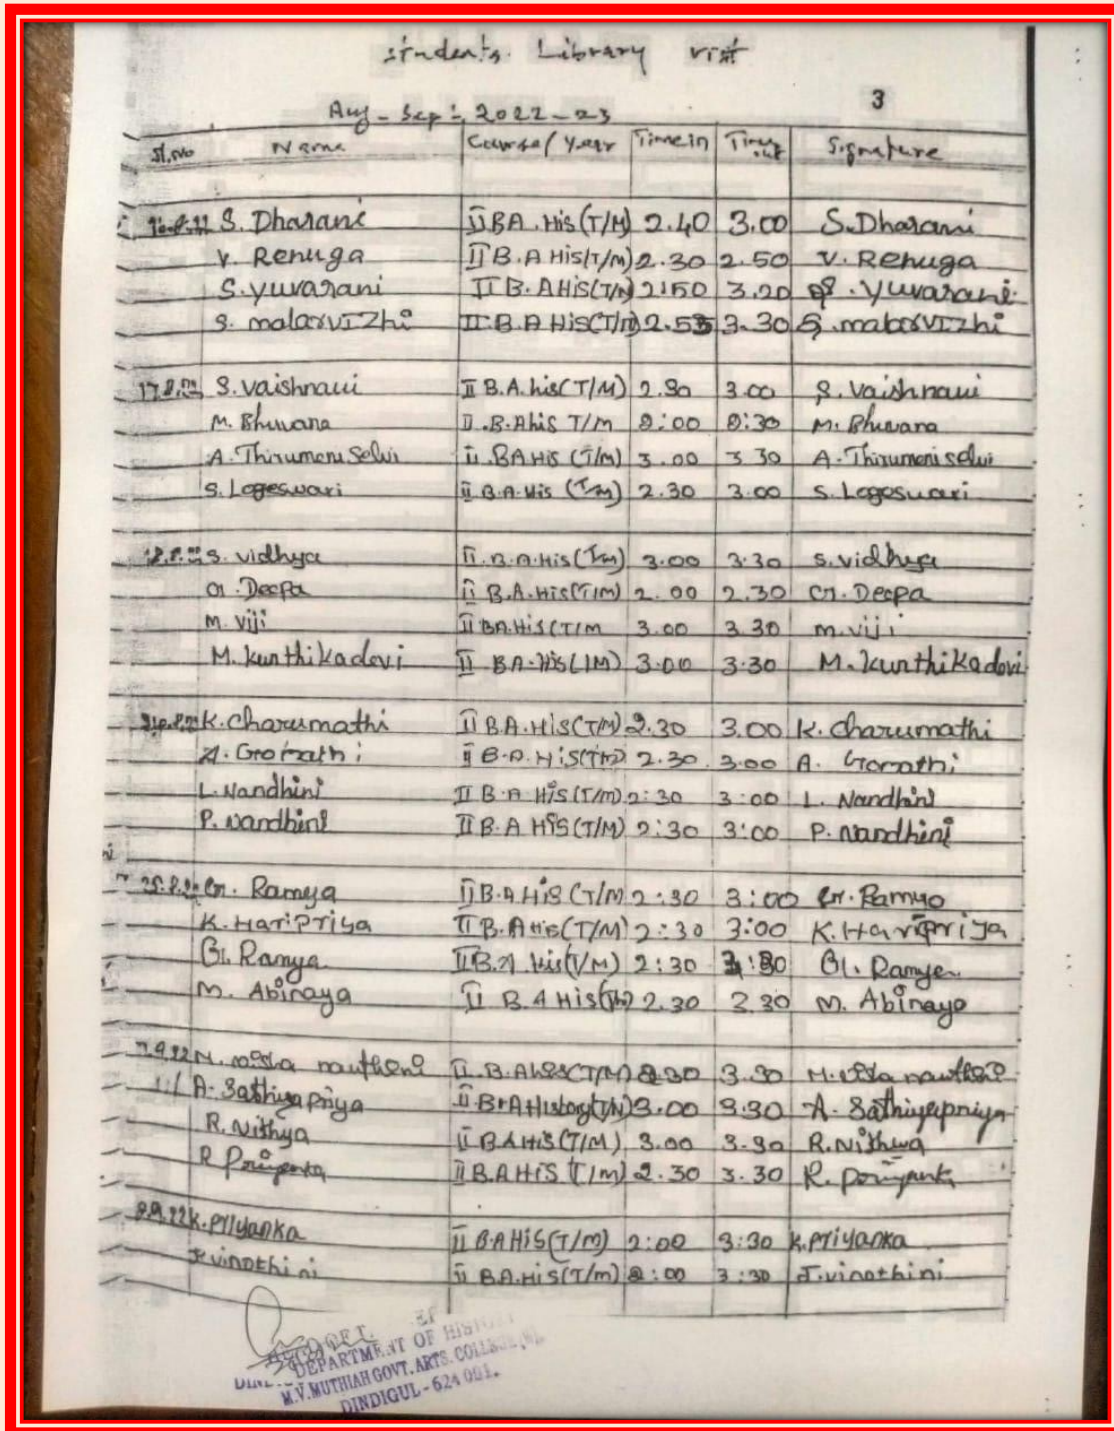 students. Library visit
3
Aug - Sep :, 2022-23
Sl.No Name Course/Year Time in Time out Signature
S. Dharani II BA. His (T/M) 2.40 3.00 S. Dharani
V. Renuga II B.A His(T/M) 2.30 2.50 V. Renuga
S. yuvarani II B.A His(T/M) 2:50 3.20 S. yuvarani
S. malarvIzhi II B.A His(T/M) 2.55 3.30 S. malarvIzhi
17.8.22 S. Vaishnavi II B.A. his(T/M) 2.30 3.00 S. Vaishnavi
M. Bhuvana II .B.A his T/M 2:00 2:30 M. Bhuvana
A. Thirumeni Selvi II .BA His (T/M) 3.00 3 30 A. Thirumeni selvi
S. Logeswari II B.A. His (T/M) 2.30 3.00 S. Logeswari
S. vidhya II. B.A. His (T/M) 3.00 3.30 S. vidhya
G. Deepa II B.A. His(T/M) 2.00 2.30 G. Deepa
M. Viji II BA. His(T/M 3.00 3.30 M. viji
M. kunthikadevi II BA. His(T/M) 3.00 3.30 M. kunthikadevi
K. Charumathi II B.A. His(T/M) 2.30 3.00 K. Charumathi
A. Gomathi II B.A. His(T/M) 2.30 3.00 A. Gomathi
L. Nandhini II B.A His(T/M) 2:30 3:00 L. Nandhini
P. Nandhini II B.A His(T/M) 2:30 3:00 P. Nandhini
25.8.22 Ramya II B.A His (T/M 2:30 3:00 Ramya
K. HariPriya II B.A His(T/M) 2:30 3:00 K. Haripriya
Ramya II B.A his(T/M) 2:30 Ramya
M. Abinaya II B.A His(T/M) 2.30 3.30 M. Abinaya
7.9.22 M. II .B.A his(T/M) 2.30 3.30 M.
A. Sathiyapriya II B.A History(T/M) 3.00 3.30 A. Sathiyapriya
R. Nithya II B.A His(T/M) 3.00 3.30 R. Nithya
R. Priyanka II B.A His (T/M) 2.30 3.30 R. Priyanka
8.9.22 K. Priyanka II B.A His(T/M) 2:00 3:30 K. Priyanka
J. vinothini II B.A. His(T/M) 2:00 3:30 J. vinothini
DEPARTMENT OF HISTORY
M.V.MUTHIAH GOVT. ARTS. COLLEGE
DINDIGUL - 624 001.